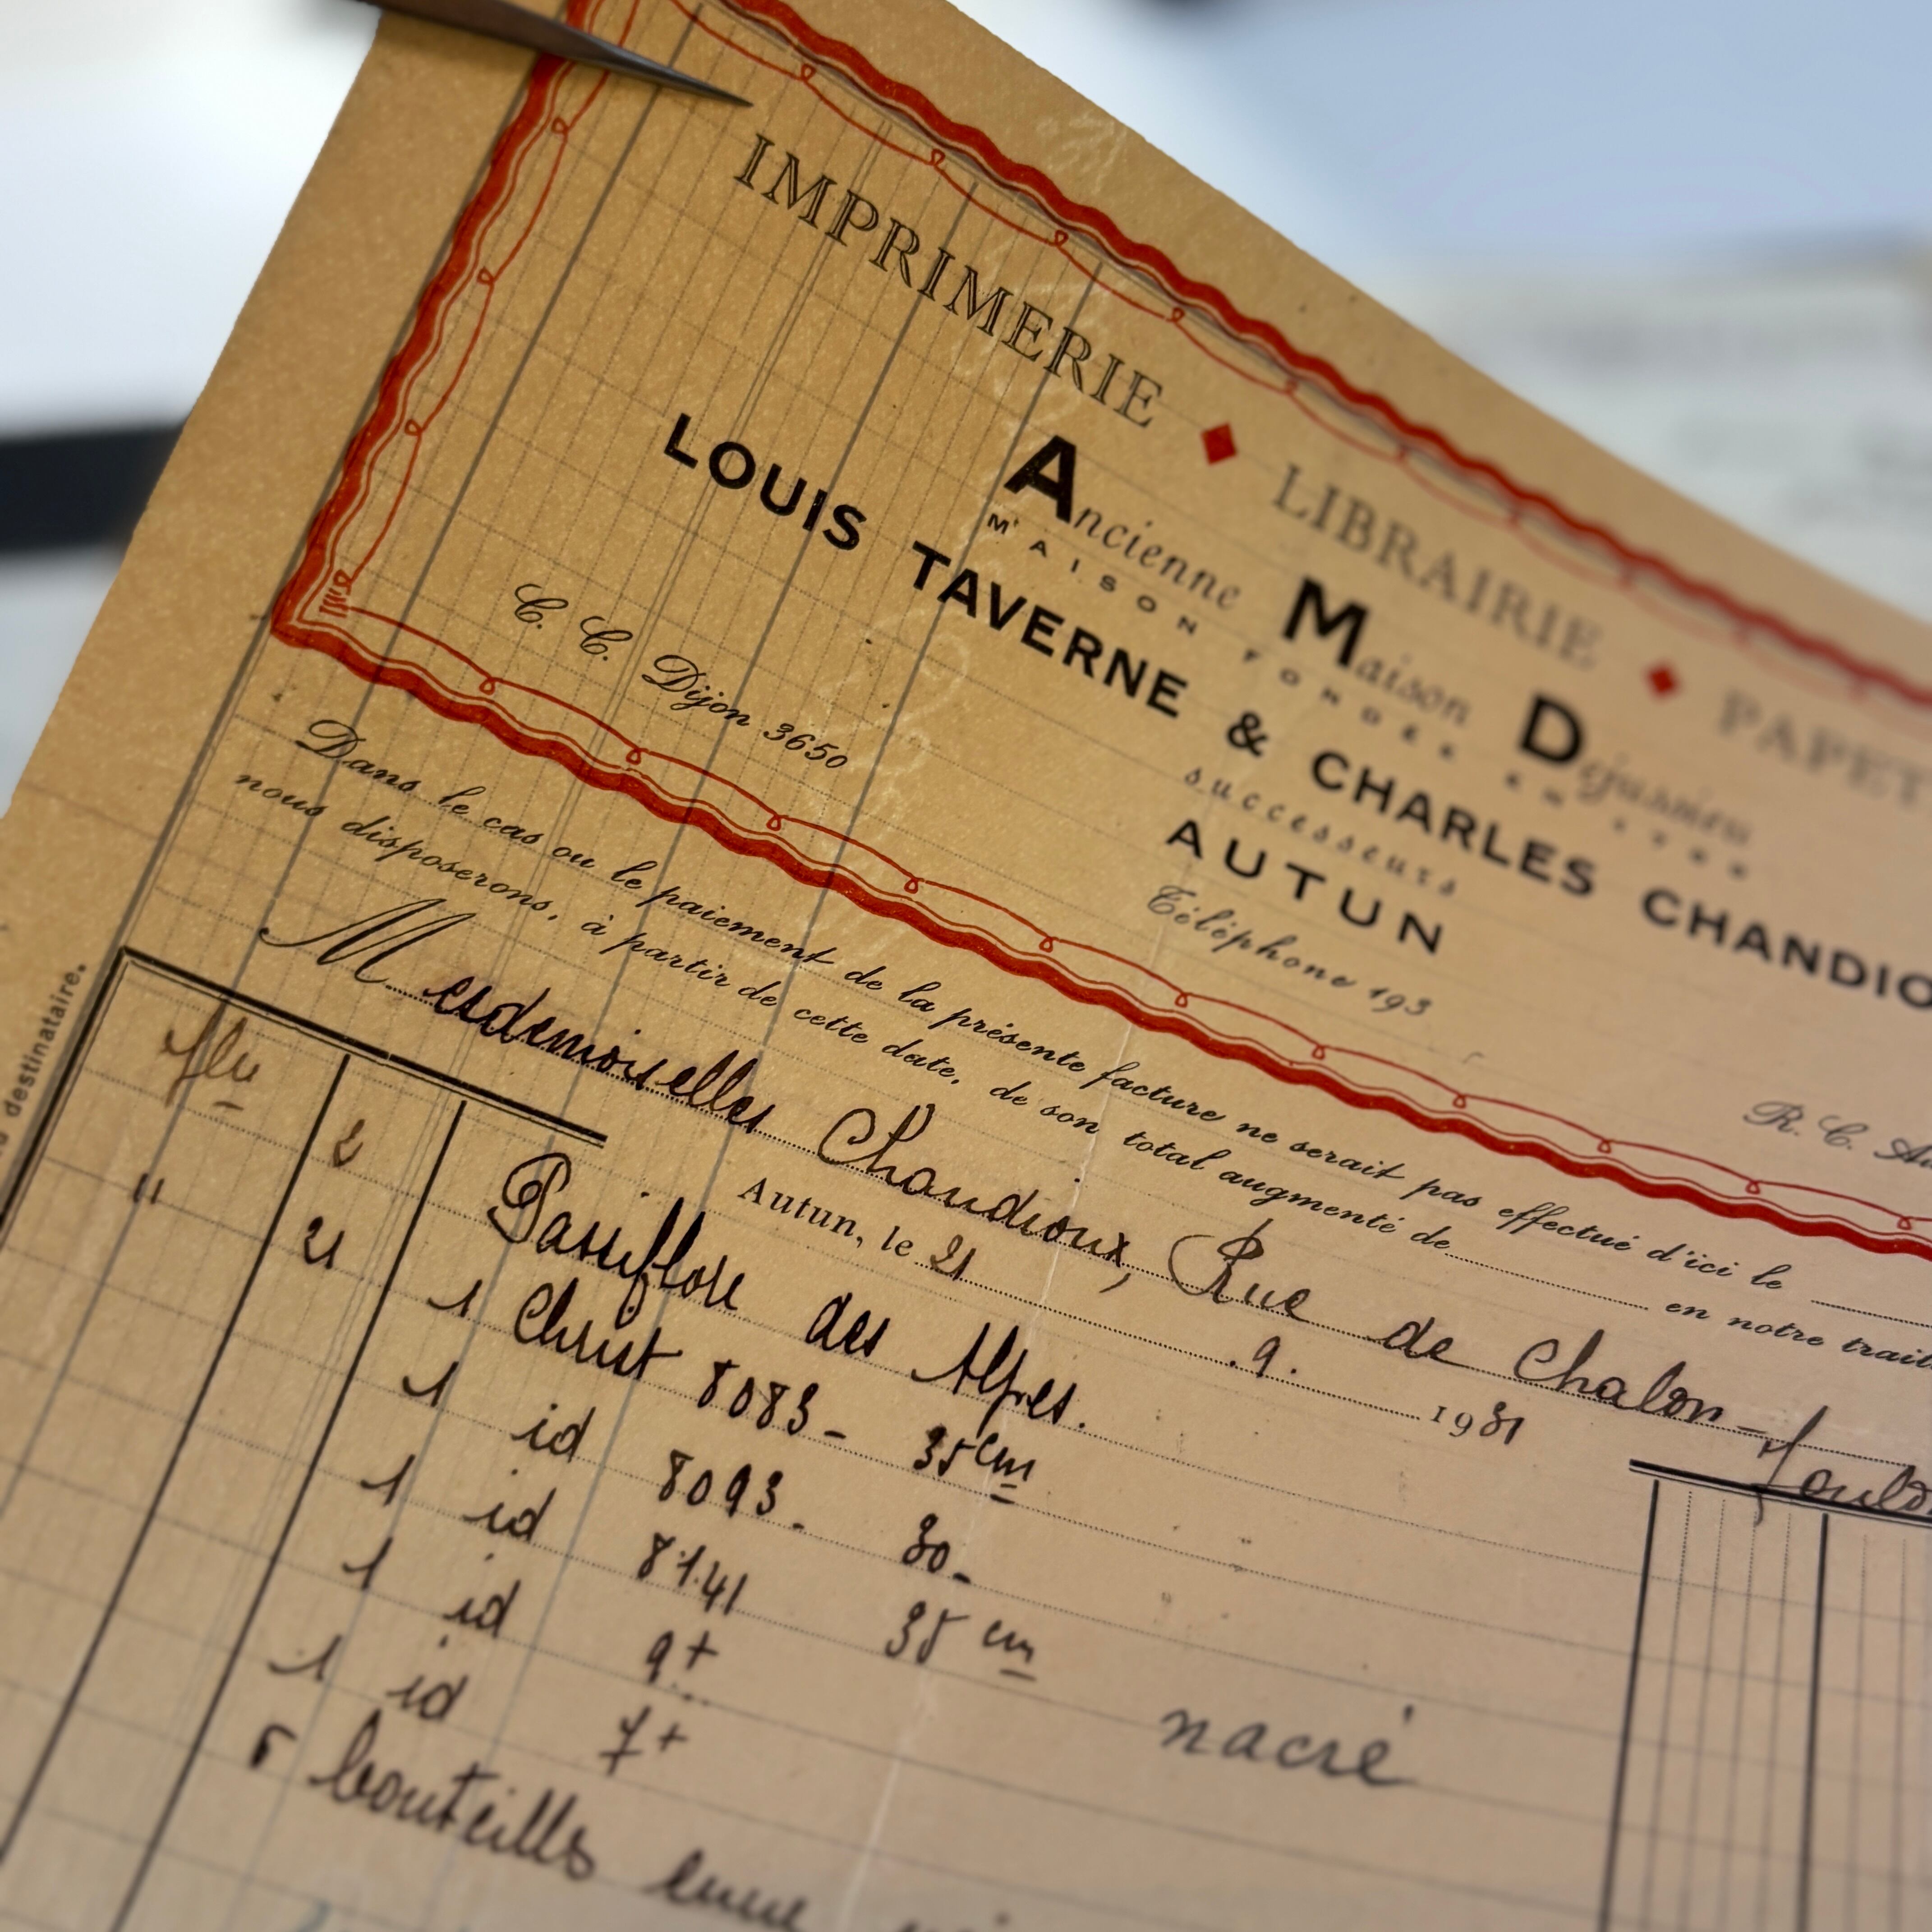 IMPRIMERIE ♦ LIBRAIRIE ♦ PAPET
Ancienne Maison Dejussieu
MAISON FONDÉE EN
LOUIS TAVERNE & CHARLES CHANDIO
successeurs
AUTUN
C. C. Dijon 3650
Téléphone 193
R. C. Au
Dans le cas ou le paiement de la présente facture ne serait pas effectué d'ici le
nous disposerons, à partir de cette date, de son total augmenté de en notre trait
Mesdemoiselles Chandioux, Rue de Chalon-
Autun, le 21 9. 1931
destinataire.
2 Passiflore des Alpes.
" 21 1 Christ 8083 - 35cm
1 id 8093 - 30 -
1 id 8141 35 cm
1 id 9+ nacré
1 id 7+
5 bouteills